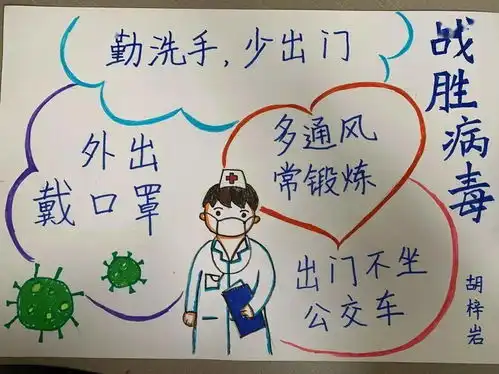 战胜病毒
勤洗手，少出门
外出
戴口罩
多通风
常锻炼
出门不坐
公交车
胡梓岩